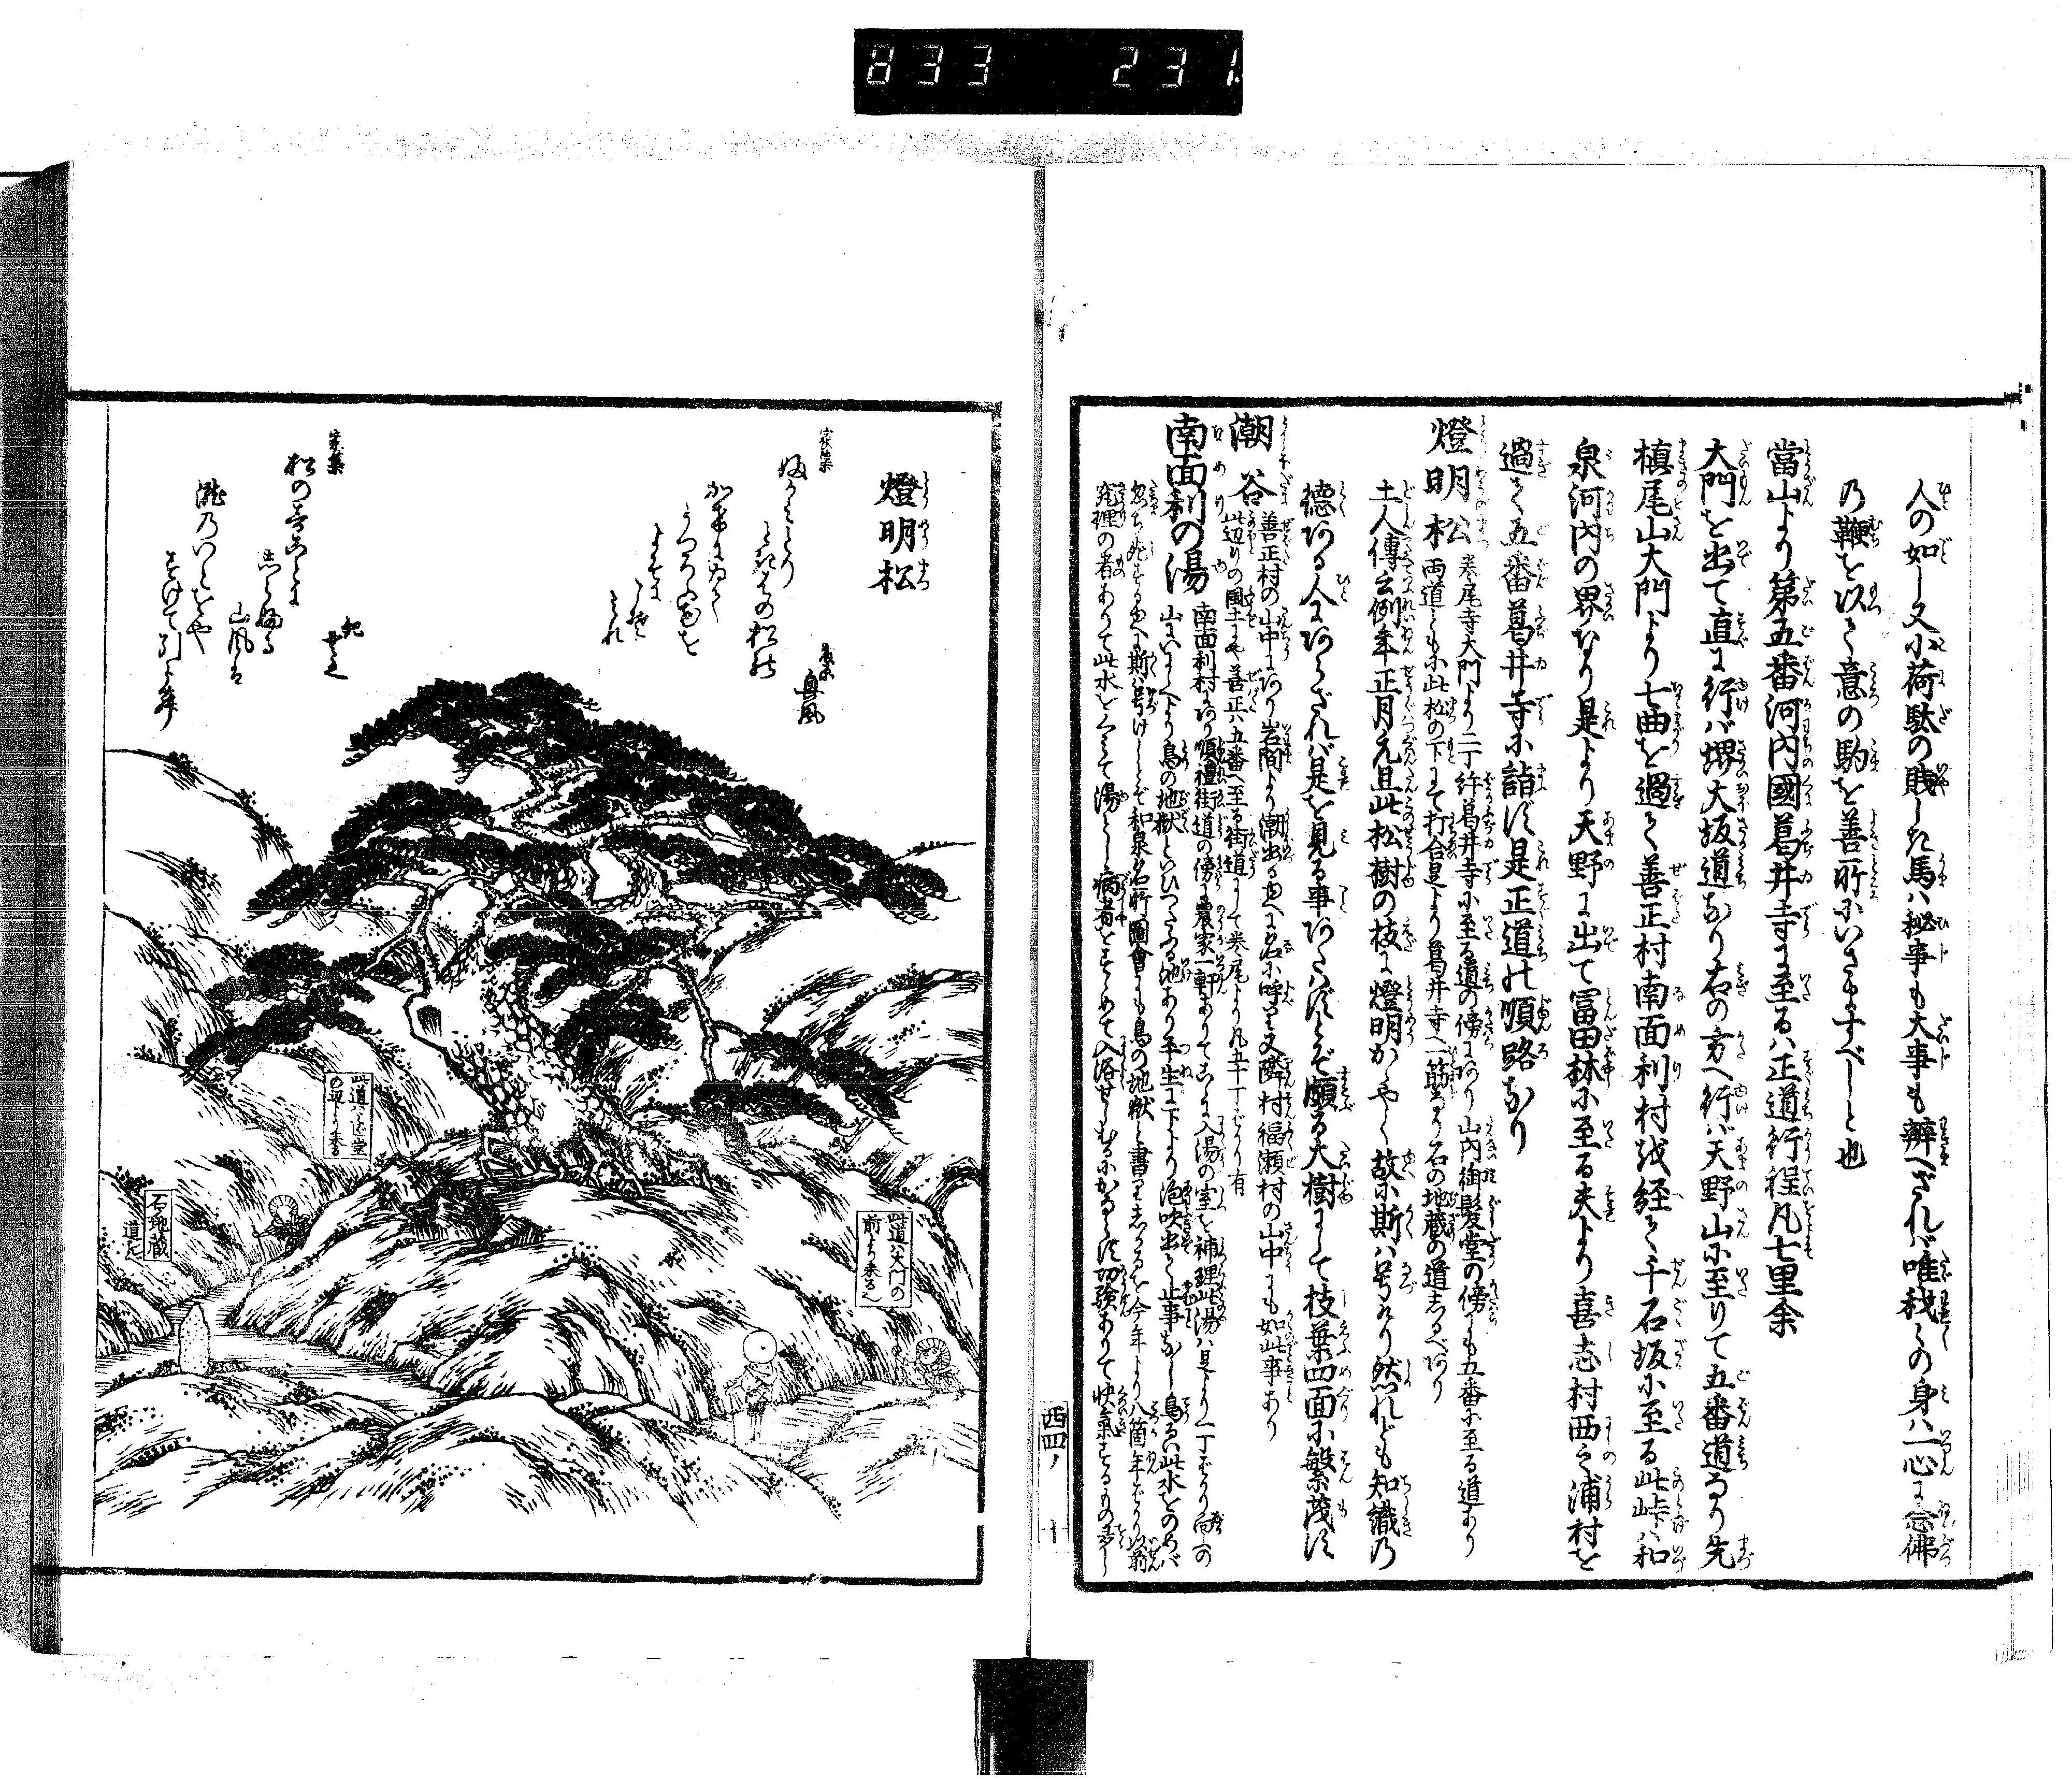 833 231.
人の如し又小荷駄の賎しき馬ハ秘事も大事も辨へざれバ唯我々の身ハ一心に念佛
乃鞭を以て意の駒を善所にいさますべしと也
當山より第五番河内國葛井寺に至るハ正道行程凡七里余
大門を出て直に行バ堺大坂道なり右の方へ行バ天野山に至りて五番道なり先
槙尾山大門より七曲を過て善正村南面利村越経て千石坂に至る此峠ハ和
泉河内の界なり是より天野に出て冨田林に至る夫より喜志村西之浦村を
過て五番葛井寺に詣ず是正道の順路なり
燈明松
巻尾寺大門より二丁許葛井寺に至る道の傍にあり山内御髪堂の傍にも五番に至る道あり
両道とも小此松の下にて打合是より葛井寺へ一筋なり石の地蔵の道しるべあり
土人傳云例年正月元旦此松樹の枝に燈明かゝやく故に斯ハ号けり然れども知識乃
徳ある人にあらざれバ是を見る事あたハずとぞ頗る大樹にして枝葉四面に繁茂す
潮谷
善正村の山中にあり岩間より潮出る也へに名に呼り又隣村福瀬村の山中にも如此事あり
此辺りの風土にや善正ハ五番へ至る街道にして巻尾より凡五十丁ばかり有
南面利の湯
南面利村にあり順禮街道の傍に農家一軒ありてこゝに入湯の室を補理此湯ハ是より一丁ばかり向の
山にいにしへより鳥の地獄といひつたふる池あり平生に下より泡吹出て止事なし鳥るい此水をのめバ
忽ち死する也へ斯ハ号けしとぞ和泉名所圖會にも鳥の地獄と書りしかるを今年より八箇年ばかり以前
究理の者ありて此水をくミて湯とし病者をすゝめて入浴せしむるにかならず功験ありて快氣するもの多し
西四ノ 十
燈明松
家集
ときはの松の
うつろふ色を
よそに
こそ
みれ
家集
松の音ことに
しらぶる
山風は
瀧乃いとをや
すげて引らむ
此道ハ大門の
前より来る
石地蔵
道しるべ